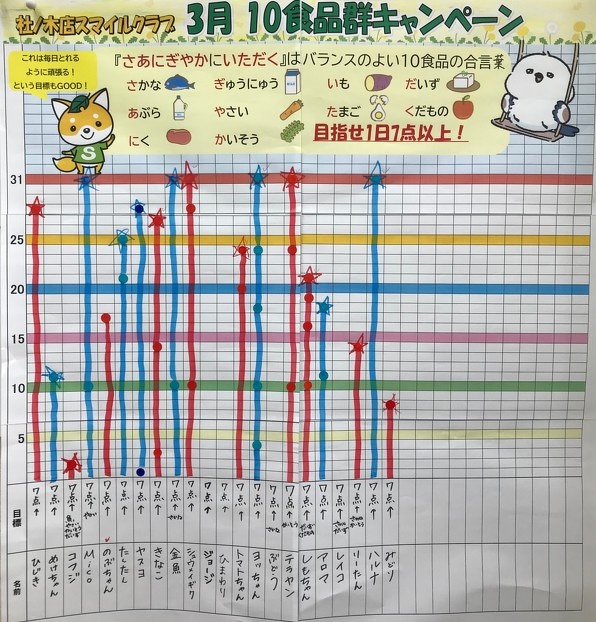 杜ノ木店スマイルクラブ 3月 10食品群キャンペーン
これは毎日とれる
ように頑張る!
という目標もGOOD!
『さあにぎやかにいただく』はバランスのよい10食品の合言葉
さかな ぎゅうにゅう いも だいず
あぶら やさい たまご くだもの
にく かいそう 目指せ1日7点以上!
S
31
25
20
15
10
5
目標
7点↑ 7点↑ 7点↑ 7点↑ 7点↑ 7点↑ 7点↑ 7点↑ 7点↑ 7点↑ 7点↑ 7点↑ 7点↑ 7点↑ 7点↑ 7点↑ 7点↑ 7点↑ 7点↑ 7点↑ 7点↑ 7点↑
名前
ひじき
めけちん
コフジ
Mico
のぶちゃん
たしたし
ヤスヨ
きなこ
金魚
シュウメイギク
ジョージ
ひまわり
トマトちゃん
ヨッちゃん
ぶどう
テラヤン
しもちゃん
アロマ
レイコ
りーたん
ハルナ
みどり